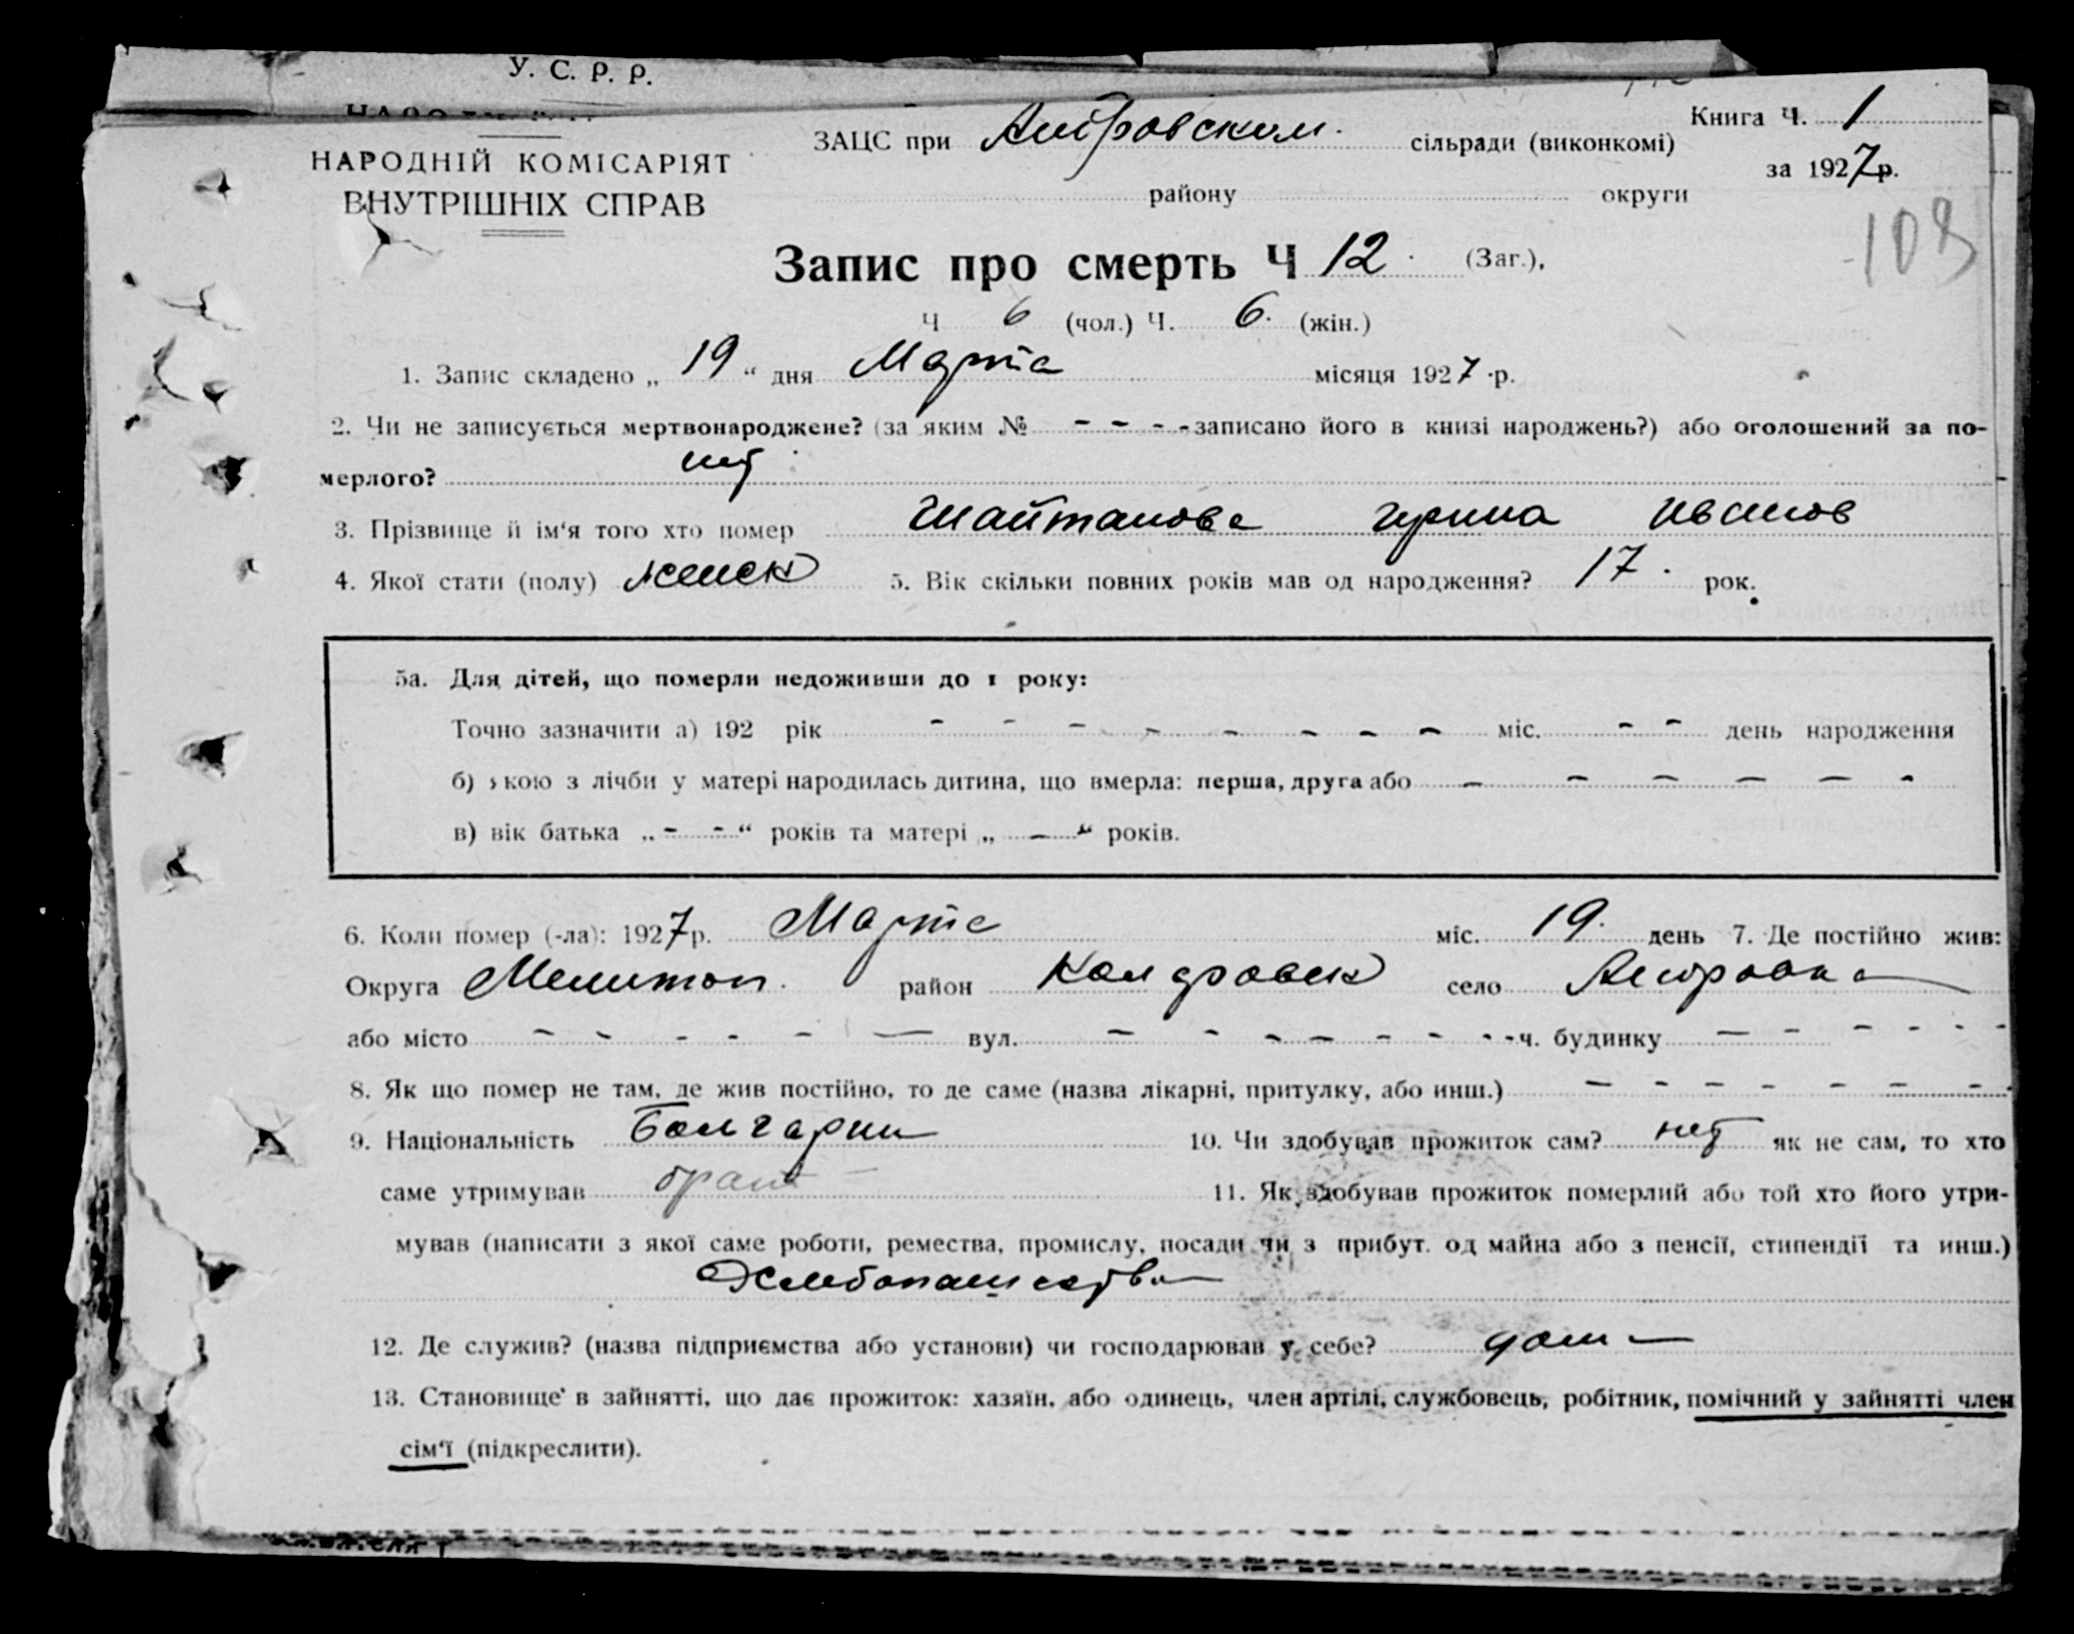 У. С. Р. Р.
НАРОДНІЙ КОМІСАРІЯТ
ВНУТРІШНІХ СПРАВ
ЗАЦС при сільради (виконкомі)
району округи
Книга Ч. 1
за 1927 р.
109
Запис про смерть Ч 12. (Заг.),
Ч 6 (чол.) Ч. 6. (жін.)
1. Запис складено „ 19 “ дня Марта місяця 1927 р.
2. Чи не записується мертвонароджене? (за яким № - - - - записано його в книзі народжень?) або оголошений за по-
мерлого? нет
3. Прізвище й ім‘я того хто помер Шайтанова Ирина Иванов
4. Якої стати (полу) женск 5. Вік скільки повних років мав од народження? 17. рок.
5а. Для дітей, що померли недоживши до 1 року:
Точно зазначити а) 192 рік - - - - - - - - міс. - - день народження
б) якою з лічби у матері народилась дитина, що вмерла: перша, друга або - - - - - -
в) вік батька „ - - “ років та матері „ - “ років.
6. Коли помер (-ла): 1927 р. Марта міс. 19. день 7. Де постійно жив:
Округа Мелитоп. район село
або місто - - - - - - вул. - - - - - - - - ч. будинку - - - - - -
8. Як що помер не там, де жив постійно, то де саме (назва лікарні, притулку, або инш.) - - - - - - -
9. Національність Болгарин 10. Чи здобував прожиток сам? нет як не сам, то хто
саме утримував брат 11. Як здобував прожиток померлий або той хто його утри-
мував (написати з якої саме роботи, ремества, промислу, посади чи з прибут. од майна або з пенсії, стипендії та инш.)
Хлебопашество
12. Де служив? (назва підприємства або установи) чи господарював у себе? дома
13. Становище в зайнятті, що дає прожиток: хазяїн, або одинець, член артілі, службовець, робітник, помічний у зайнятті член
сім‘ї (підкреслити).